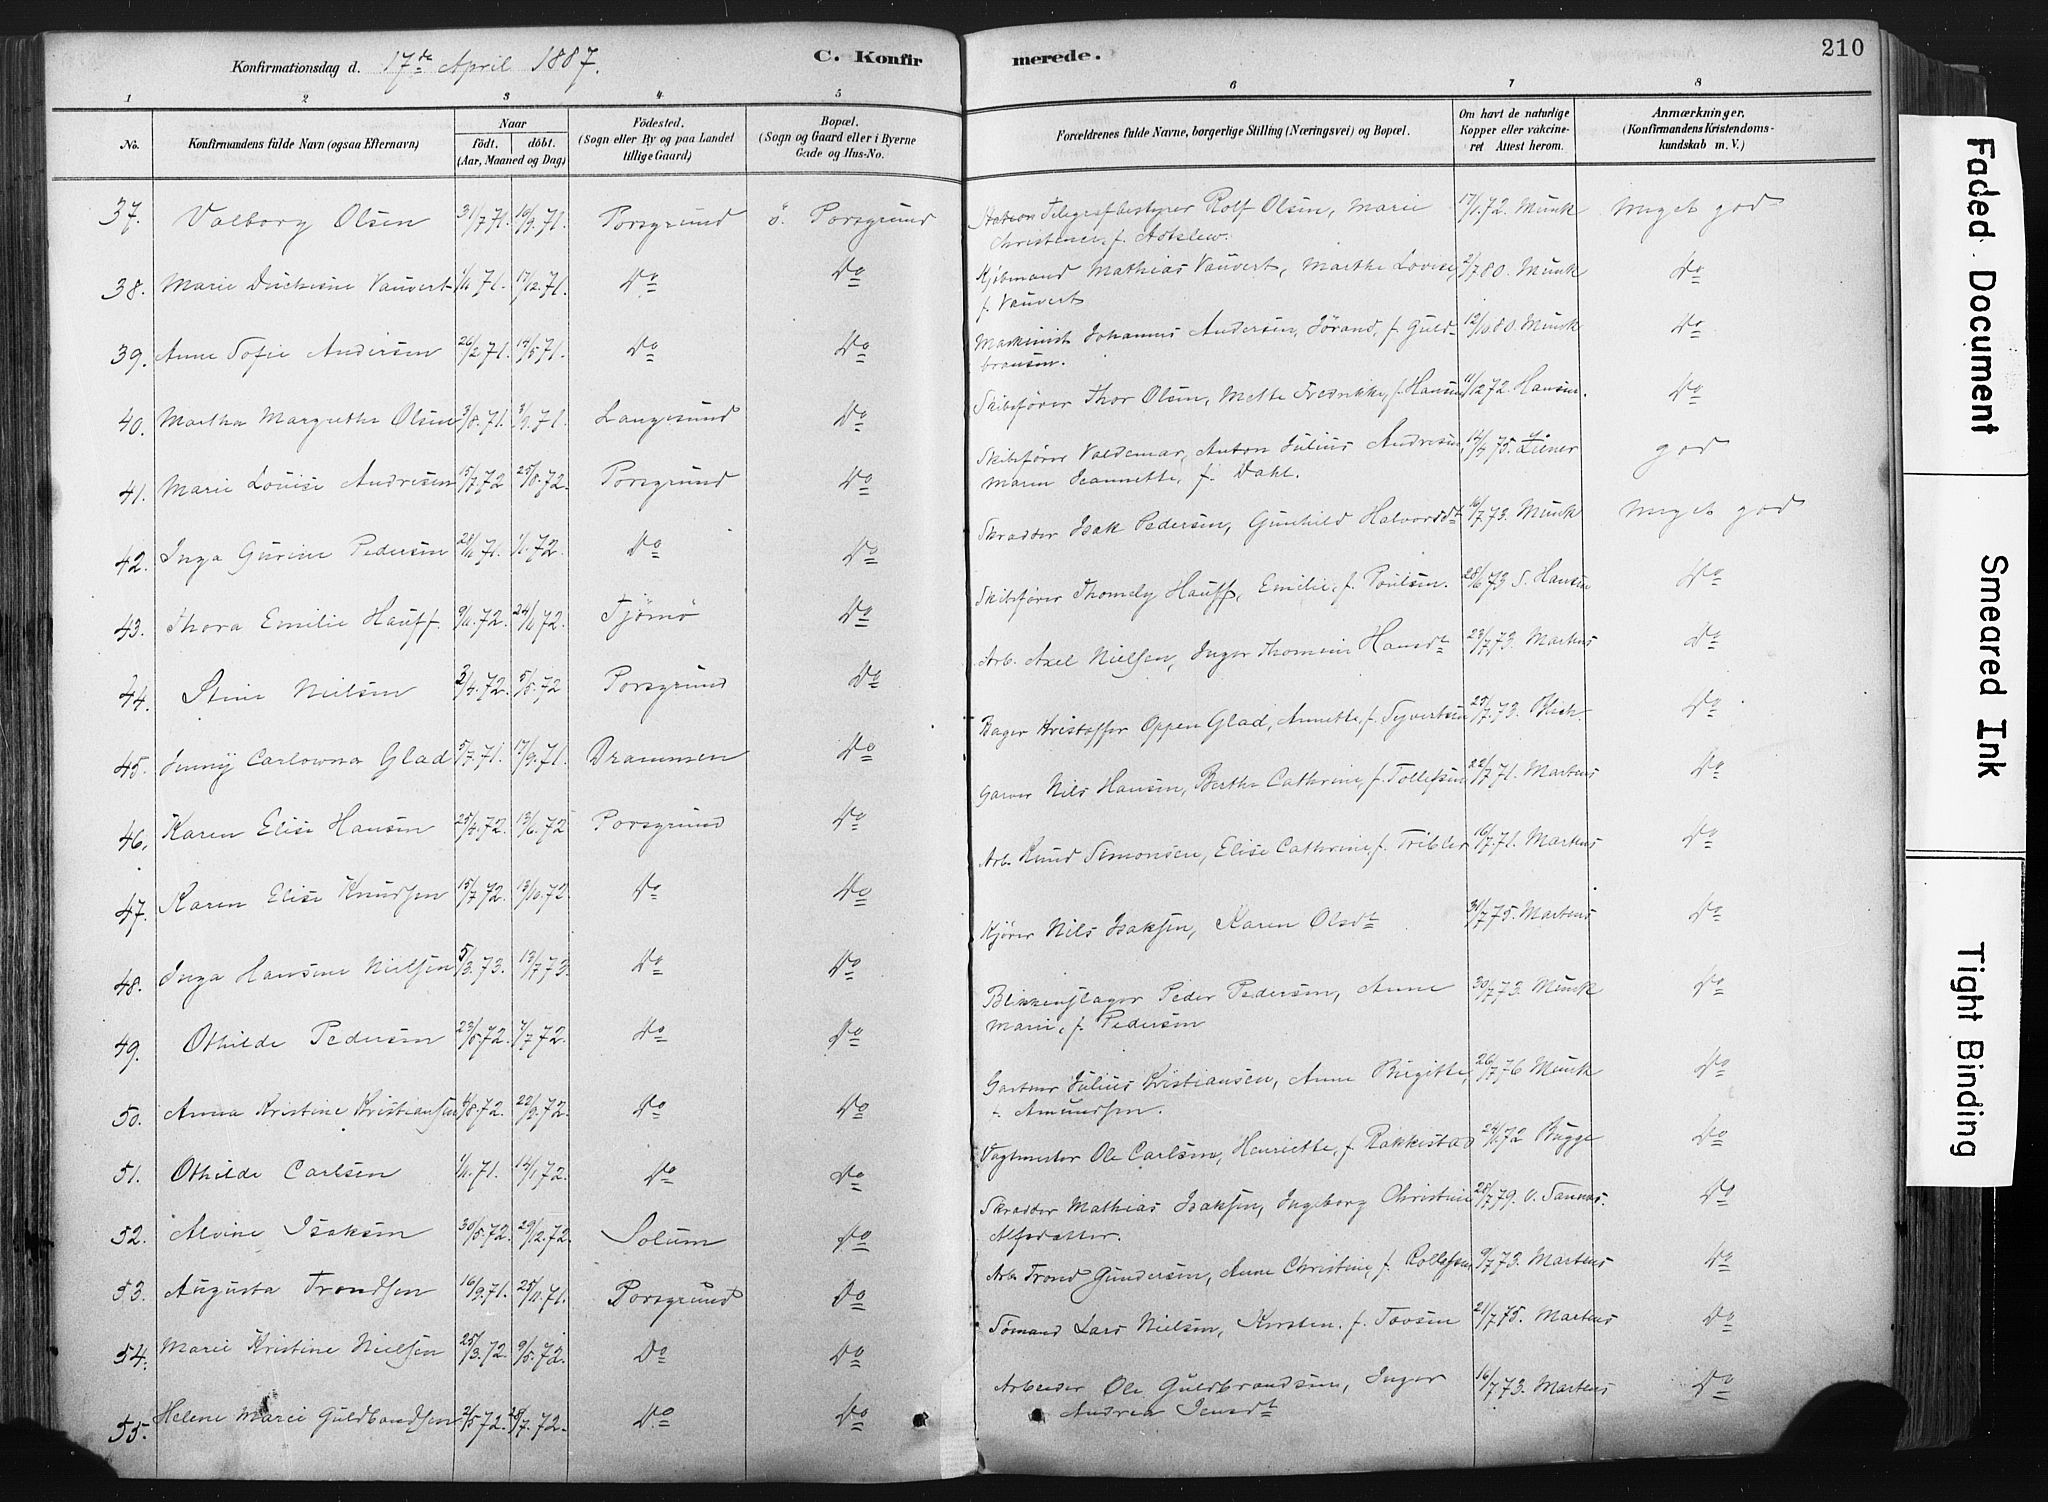 Konfirmationsdag d. 17de April 1887. C. Konfirmerede. 210
1 2 3 4 5 6 7 8
No. Konfirmandens fulde Navn (ogsaa Efternavn) Naar födt. döbt. (Aar, Maaned og Dag) Födested. (Sogn eller By og paa Landet tillige Gaard) Bopæl. (Sogn og Gaard eller i Byerne Gade og Hus-No.) Forældrenes fulde Navne, borgerlige Stilling (Næringsvei) og Bopæl. Om havt de naturlige Kopper eller vakcineret Attest herom. Anmærkninger. (Konfirmandens Kristendomskundskab m. V.)
37. Valborg Olsen 31/7 71. 10/9 71. Porsgrund ö. Porsgrund Telegrafbestyrer Rolf Olsen, Marie 17/1 72. Munk Meget god
f.
38. Marie Vauvert 1/11 71. 17/12 71. Do Do Kjöbmand Mathias Vauvert, Marthe Lovise, 2/7 80. Munk Do
f. Vauvert
39. Anne Sofie Andersen 26/2 71. 14/5 71. Do Do Maskinist Johannes Andersen, Jörand, f. Guld- 12/10 80. Munk Do
bransen.
40. Martha Margrethe Olsen 3/8 71. 3/9 71. Langesund Do Skibsförer Thor Olsen, Mette Fredrikke, f. Hansen 11/12 72. Hansen. Do
41. Marie Louise Andresen 15/7 72 25/8 72. Porsgrund Do Skibsförer Valdemar Anton Julius Andresen, 14/4 75. god
Maren Jeannette, f. Dahl.
42. Inga Gurine Pedersen 28/11 71. 1/1 72. Do Do Skradder Isak Pedersen, Gunhild Halvorsdt 16/7 73. Munk Meget god
43. Thora Emilie Hauff. 9/1 72. 24/11 72. Tjömö Do Skibsförer Thomely Hauff, Emilie, f. Poulsen. 28/6 73 S. Hansen Do
44. Stine Nielsen 2/4 72. 5/5 72 Porsgrund Do Arb. Axel Nielsen, Inger Thomine Hansdt 23/7 73. Martens Do
45. Jenny Carlowna Glad 5/7 71. 17/9 71. Drammen Do Bager Kristoffer Oppen Glad, Annette, f. Syvertsen 25/7 73. Blich. Do
46. Karen Elise Hansen 25/4 72. 13/6 72 Porsgrund Do Garver Nils Hansen, Berthe Cathrine, f. Tollefsen 22/7 71. Martens Do
47. Karen Elise Knudsen 15/7 72 13/10 72. Do Do Arb. Knud Simonsen, Elise Cathrine, f. Tribler 16/7 71. Martens Do
48. Inga Hansine Nielsen 5/3 73. 13/7 73. Do Do Kjörer Nils Isaksen, Karen Olsdt 31/7 75. Martens Do
49. Othilde Pedersen 23/5 72. 7/7 72. Do Do Blikkenslager Peder Pedersen, Anne 30/7 73. Munk Do
Marie, f. Pedersen
50. Anna Kristine Kristiansen 4/8 72. 22/9 72. Do Do Gartner Julius Kristiansen, Anne Birgitte, 26/7 76 Munk Do
Amundsen.
51. Othilde Carlsen 1/11 71. 14/1 72. Do Do Vagtmester Ole Carlsen, Henriette, f. Rakkestad 24/11 72 Bugge Do
52. Alvine Isaksen 30/5 72. 29/12 72. Solum Do Skradder Mathias Isaksen, Ingeborg Christine 28/7 79. v. Tannas. Do
Alfsdatter.
53. Augusta Trondsen 16/9 71. 25/11 71. Porsgrund Do Arb. Trond Gundersen, Anne Christine, f. Rollefsen 9/7 73. Martens Do
54. Marie Kristine Nielsen 25/3 72. 9/5 72. Do Do Sömand Lars Nielsen, Kirsten f. Tovsen 21/7 75. Martens Do
55. Helene Marie Guldbrandsen 2/5 72. 28/7 72. Do Do Arbeider Ole Guldbrandsen, Inger 16/7 73. Martens Do
Andrea Jensdt
Faded Document
Smeared Ink
Tight Binding